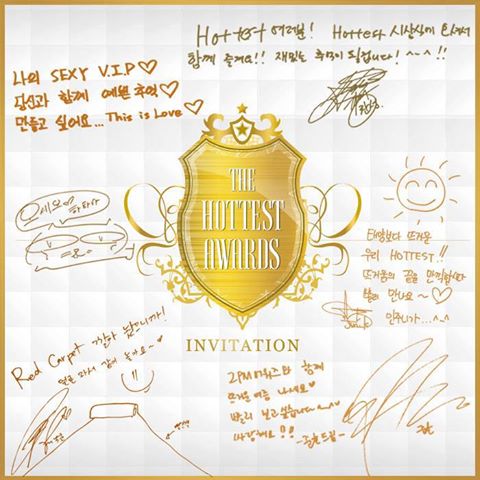 Hottest 여러분! Hottest 시상식에 오셔서
함께 즐겨요!! 재밌는 추억이 됩니다! ^~^!!
나의 SEXY V.I.P ♡
당신과 함께 예쁜 추억 ♡
만들고 싶어요... This is Love ♡
THE
HOTTEST
AWARDS
INVITATION
태양보다 뜨거운
우리 HOTTEST!!
뜨거움의 끝을 만끽합시다
빨리 만나요 ~ ♡
민주니가...^^
Red Carpet
같이 놀아요~
2PM 멤버들과 함께
뜨거운 여름 나세요♡
빨리 보고싶습니다
사랑해요!!